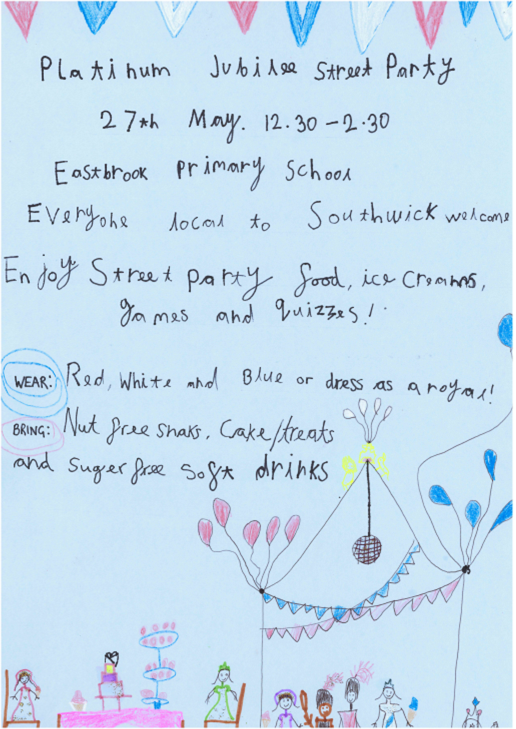 Platinum Jubilee Street Party
27th May. 12.30 - 2.30
Eastbrook Primary School
Everyone local to Southwick welcome
Enjoy Street party food, ice creams,
games and quizzes!
WEAR: Red, White and Blue or dress as a royal!
BRING: Nut free snaks, Cake/treats
and suger free soft drinks